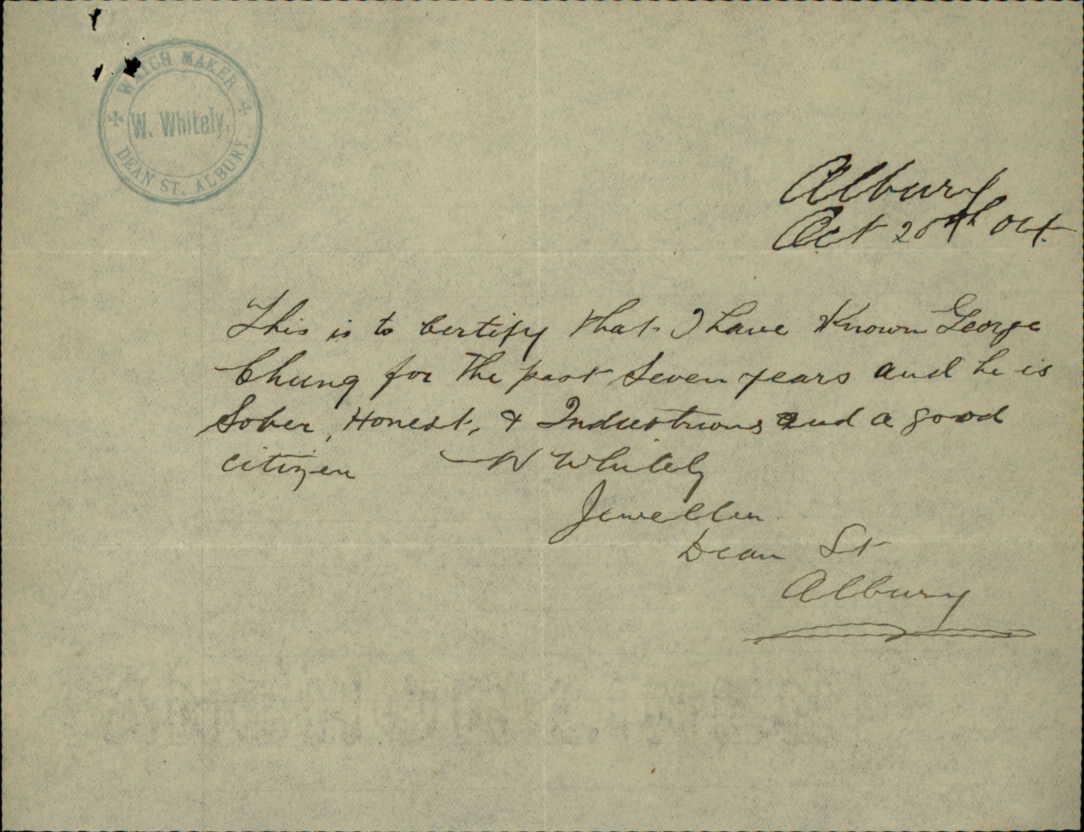 WATCH MAKER
W. Whitely.
DEAN ST. ALBURY
Albury
Oct 20th 04
This is to Certify that I have Known George
Chung for the past Seven years and he is
Sober, Honest, & Industrious and a good
citizen W Whitely
Jeweller
Dean St
Albury